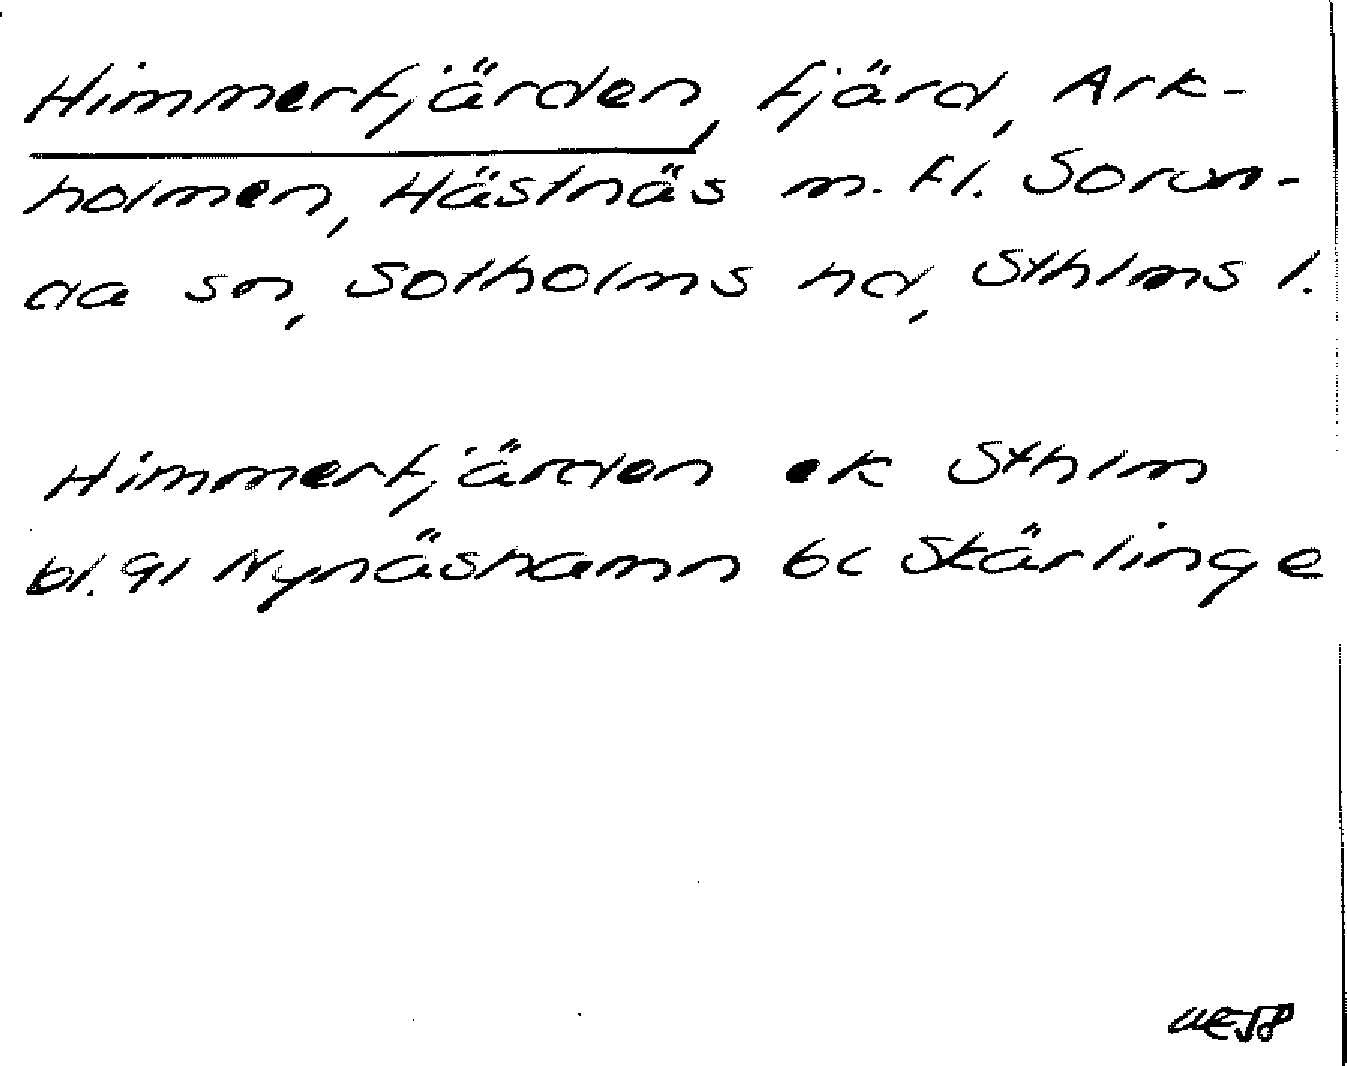 Himmerfjärden, fjärd, Ark-
holmen, Hästnäs m. fl. Sorun-
da sn, Sotholms hd, Sthlms l.
Himmerfjärden ek Sthlm
bl. 91 Nynäshamn bc Skärlinge